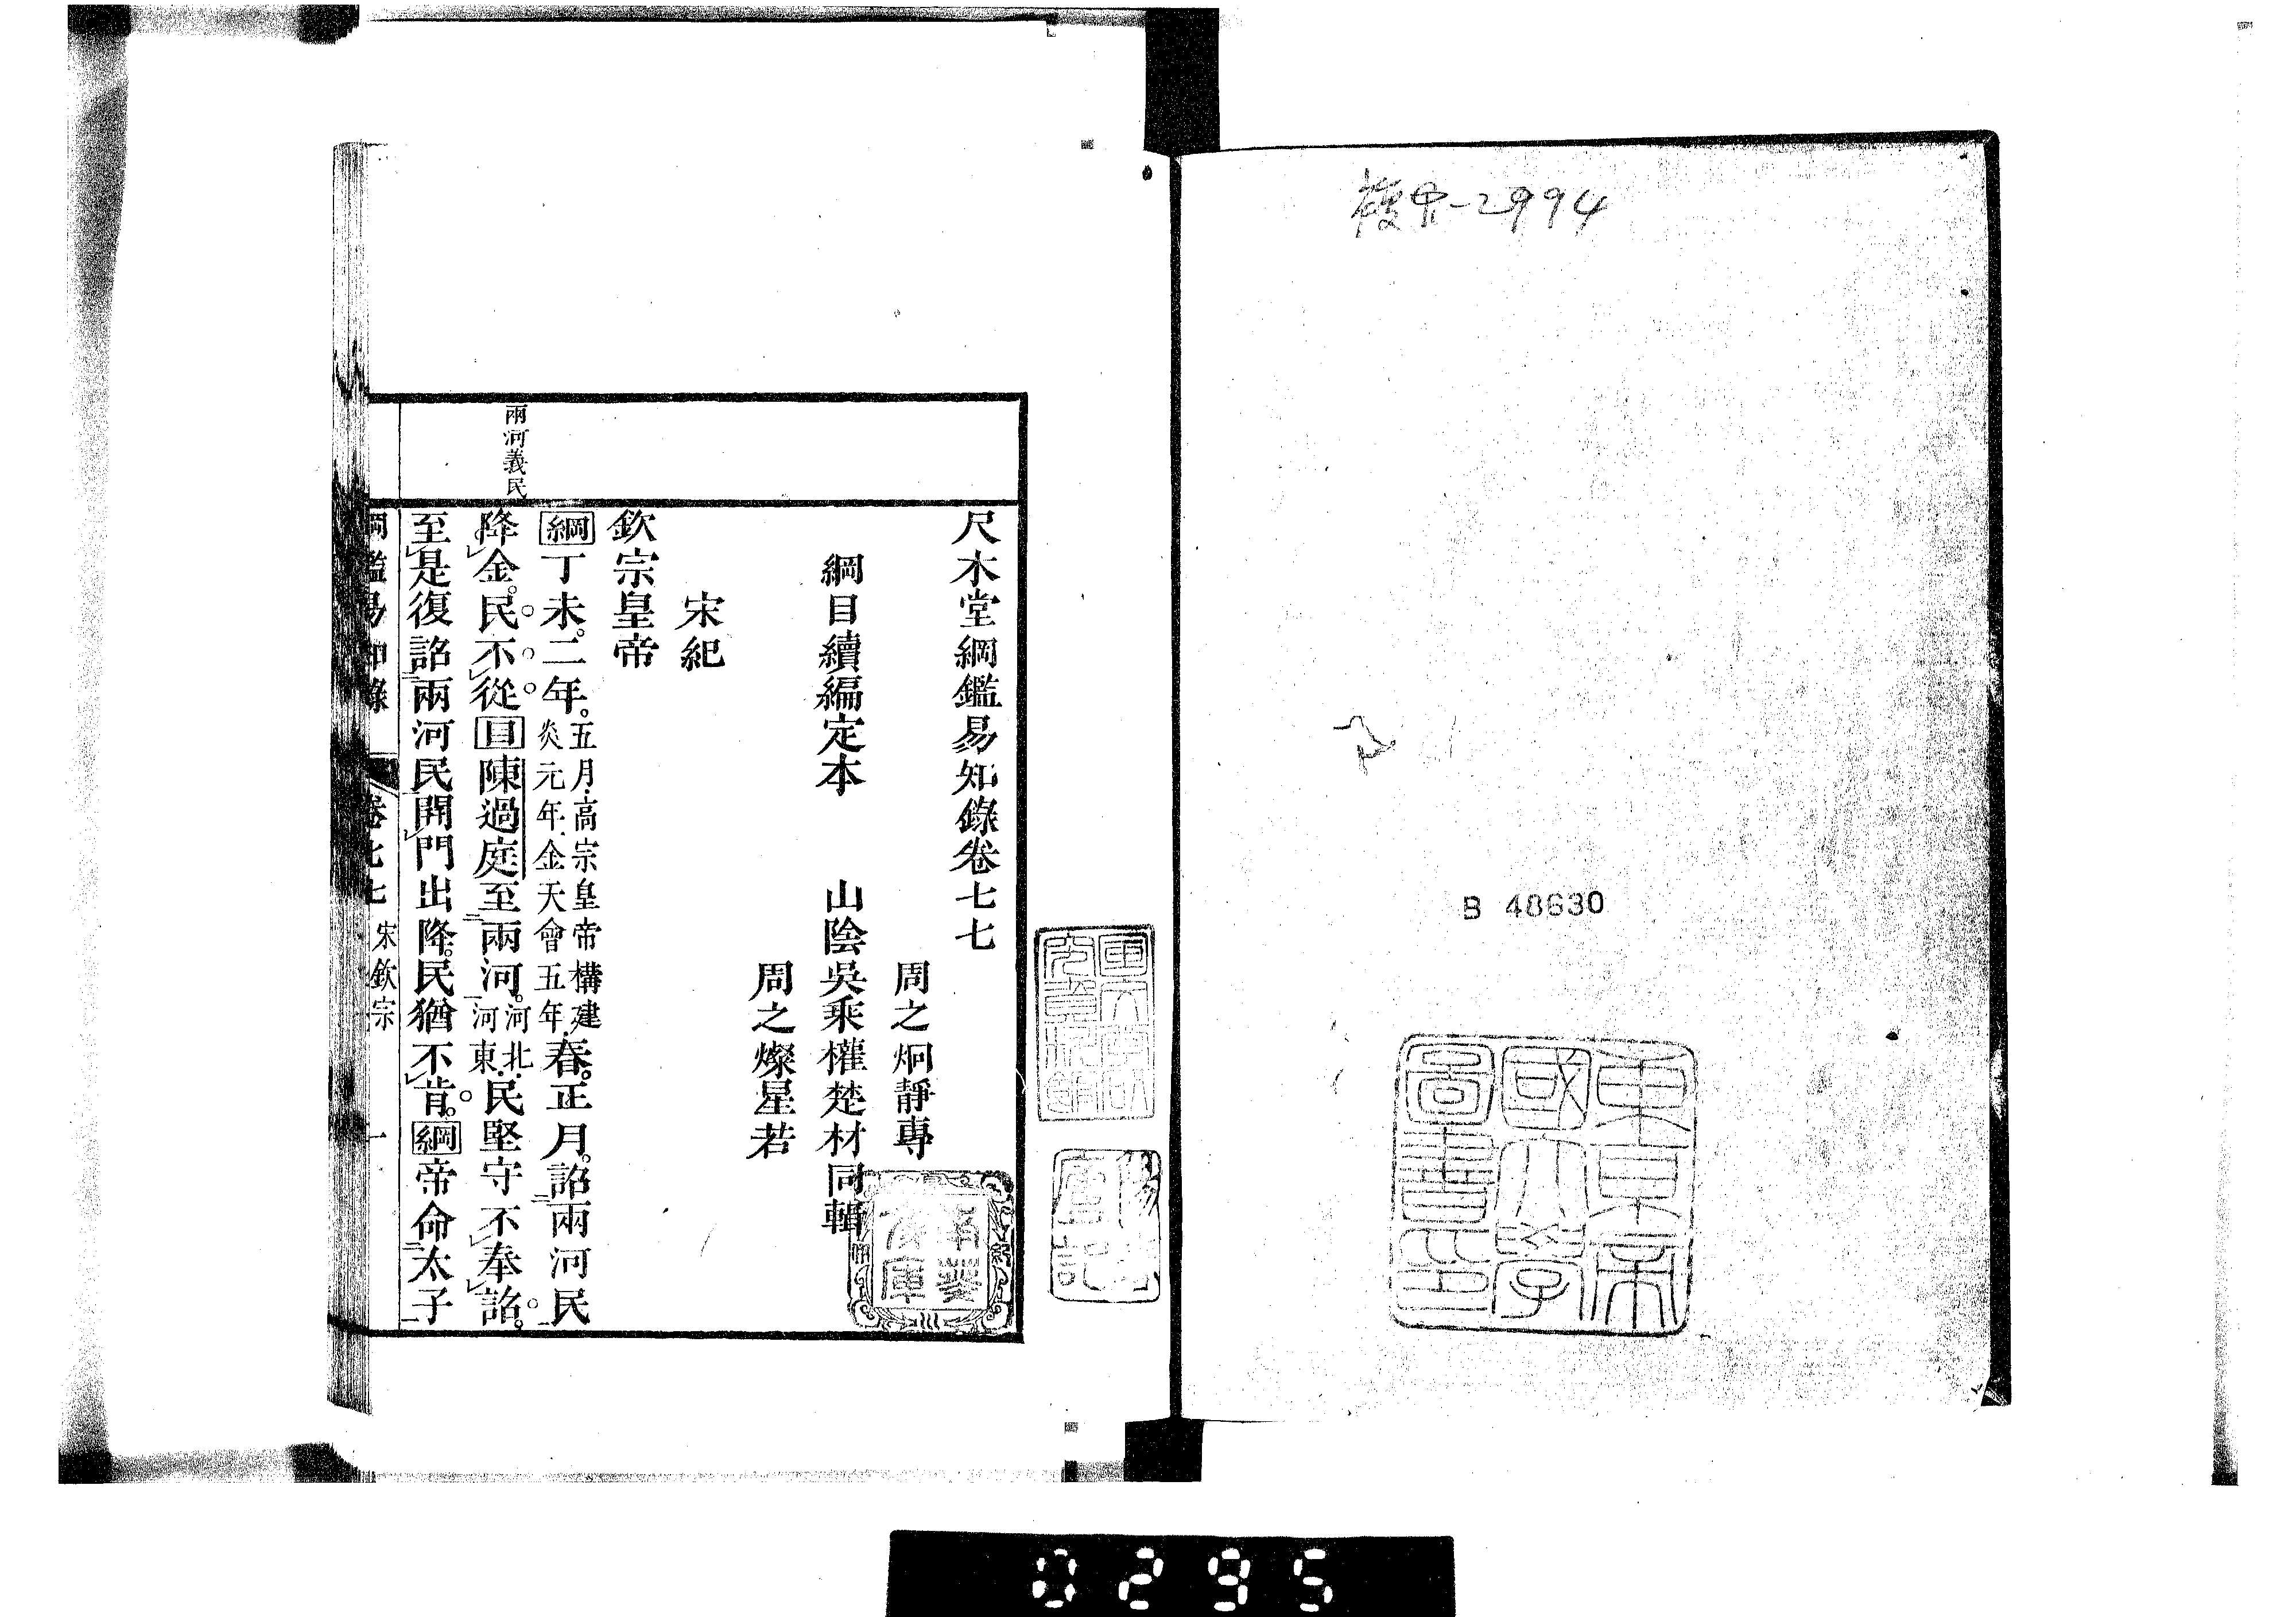 複中-2994
B 48630
東京帝
國大學
圖書印
尺木堂綱鑑易知錄卷七七
周之炯靜專
綱目續編定本 山陰吳乘權楚材同輯
周之燦星若
宋紀
欽宗皇帝
綱丁未。二年。五月、高宗皇帝構建炎元年、金天會五年、春。正月。詔兩河民
兩河義民
降金。民不從。目陳過庭至兩河。河北、河東、民堅守不奉詔。
至是復詔兩河民開門出降。民猶不肯。綱帝命太子
綱鑑易知錄 卷七七 宋欽宗 一
0295